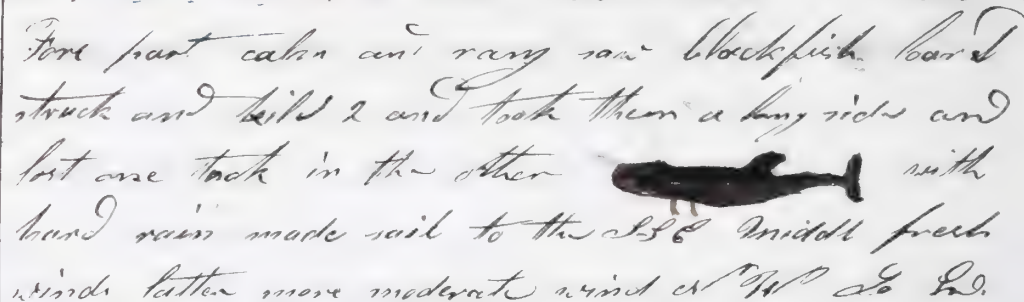 Fore part calm and rany saw blackfish loard
struck and kild 2 and took them a long side and
lost one took in the other with
hard rain made sail to the SSE Middl fresh
winds latter more moderate wind